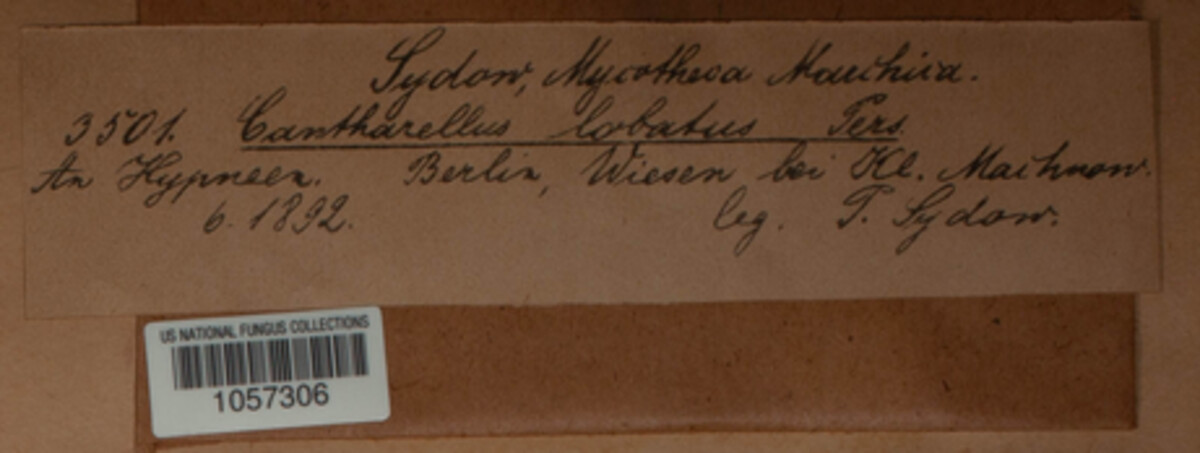 Sydow, Mycotheca Marchica.
3501. Cantharellus lobatus Pers.
An Hypneen. Berlin, Wiesen bei Kl. Machnow.
6. 1892. leg. P. Sydow.
US NATIONAL FUNGUS COLLECTIONS
1057306